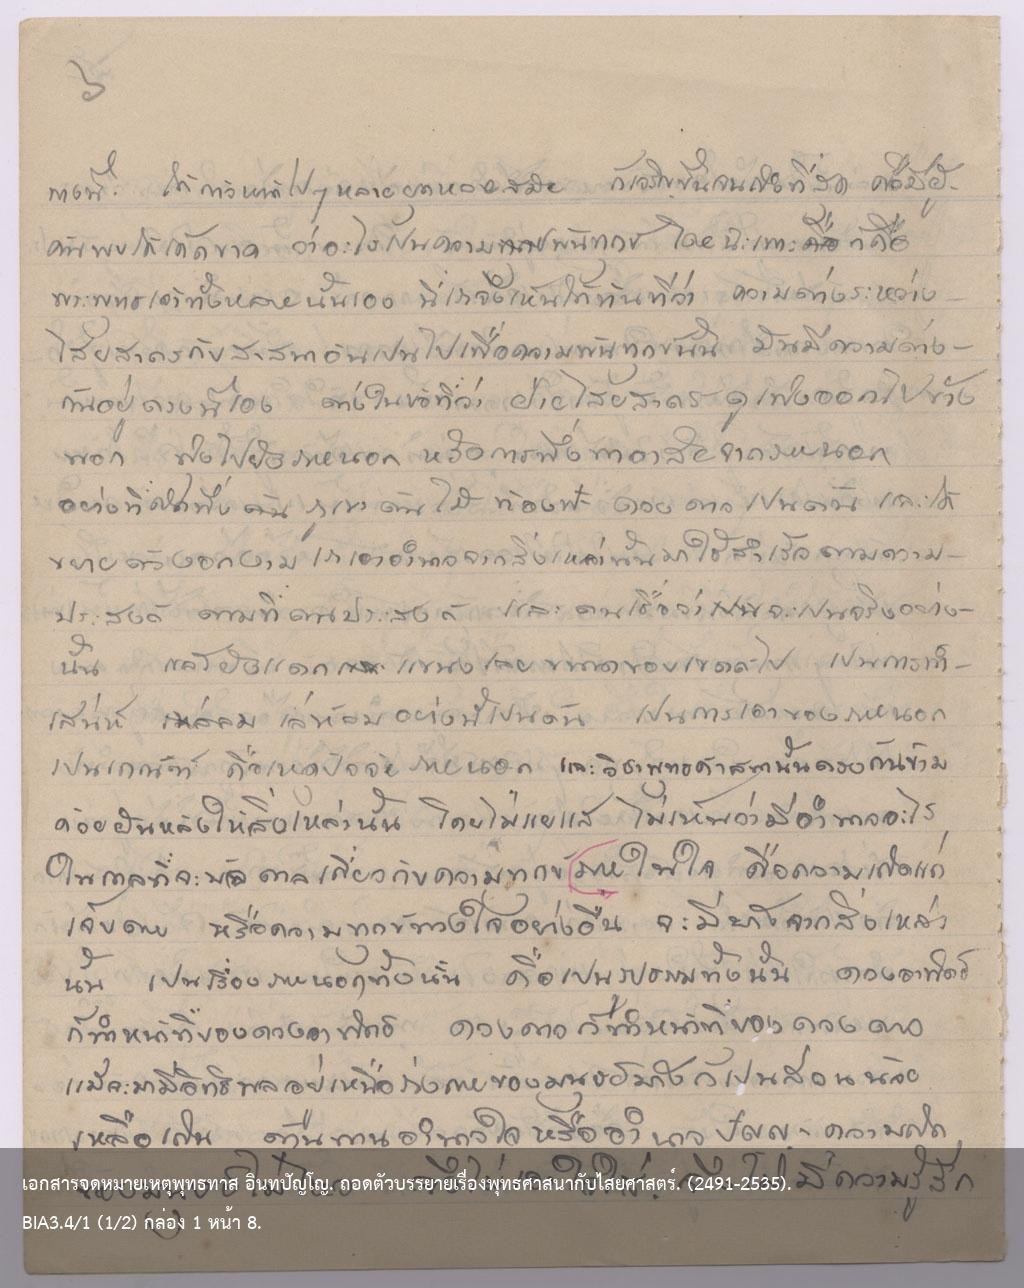 ๖
ทางนี้. ได้ก้าวหน้าไปๆ หลายยุคหลายสมัย ก็เจริญขึ้นจนถึงที่สุด คือมีผู้-
ค้นพบได้เด็ดขาด ว่าอะไรเป็นความพ้นทุกข์ โดยฉะเพาะก็คือ
พระพุทธเจ้าทั้งหลายนั้นเอง นี่เราจึงเห็นได้ทันทีว่า ความต่างระหว่าง-
ไสยสาตรกับสาสนาอันเป็นไปเพื่อความพ้นทุกข์นั้น มันมีความต่าง-
กันอยู่ตรงนี้เอง ต่างในข้อที่ว่า ฝ่ายไสยสาตร ดูเพ่งออกไปข้าง
นอก พึ่งไปยังภายนอก หรือการพึ่งพาอาศัยจากภายนอก
อย่างที่ พึ่ง ต้น ภูเขา ต้นไม้ ท้องฟ้า ดวงดาว เป็นต้น และได้
ขยายตัวงอกงาม เอาอำนาจจากสิ่งเหล่านั้นมาใช้สำเร็จตามความ-
ประสงค์ ตามที่ตนประสงค์ และ ตนเชื่อว่า จะเป็นจริงอย่าง-
นั้น แล้วยังแตก แขนงเลยขนาดขอบเขตต์ไป เป็นการทำ-
เสน่ห์ เล่ห์ลม อย่างนี้เป็นต้น เป็นการเอาของภายนอก
เป็นเกณฑ์ คือเหตุปัจจัยภายนอก และวิธีพุทธศาสนานั้นตรงกันข้าม
ค่อยหันหลังให้สิ่งเหล่านั้น โดยไม่แยแส ไม่เห็นว่ามีอำนาจอะไร
ในการที่จะ เกี่ยวกับความทุกข์ภายในใจ คือความเกิดแก่
เจ็บตาย หรือความทุกข์ทางใจอย่างอื่น จะมีมาจากสิ่งเหล่า
นั้น เป็นเรื่องภายนอกทั้งนั้น คือเป็นรูปธรรมทั้งนั้น ดวงอาทิตย์
ก็ทำหน้าที่ของดวงอาทิตย์ ดวงดาวก็ทำหน้าที่ของดวงดาว
แม้จะมามีอิทธิพลอยู่เหนือร่างกายของมนุษย์บ้างก็เป็นส่วนน้อย
เหลือเกิน ต้านทานอำนาจใจ หรืออำนาจปัญญา ความคิด
ของมนุษย์ไม่ได้ จึงไม่ มีความรู้สึก
เอกสารจดหมายเหตุพุทธทาส อินทปัญโญ. ถอดตัวบรรยายเรื่องพุทธศาสนากับไสยศาสตร์. (2491-2535).
BIA3.4/1 (1/2) กล่อง 1 หน้า 8.